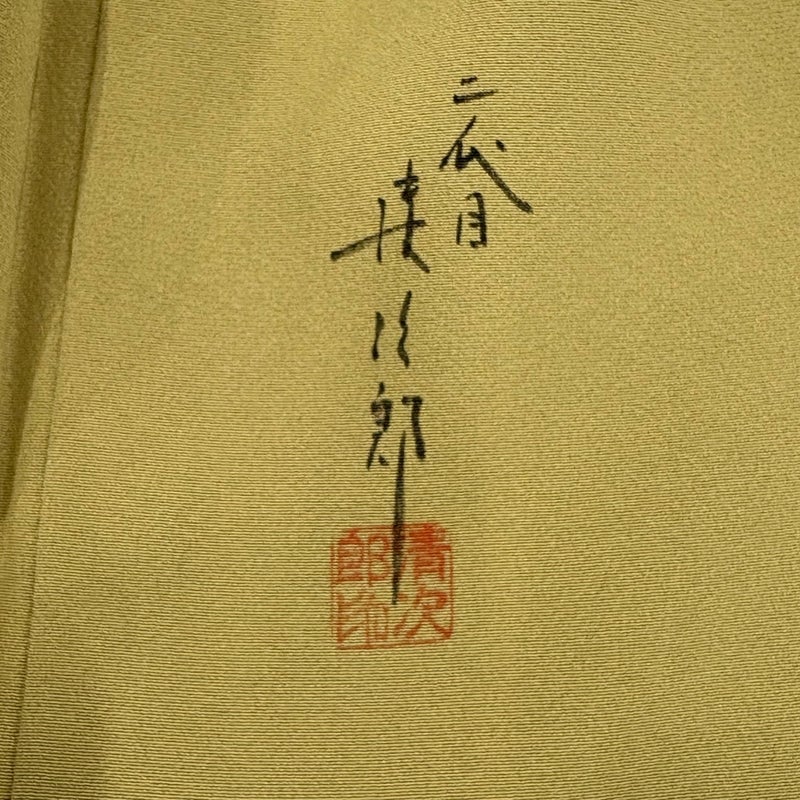 二代目
清次郎
清次
郎印